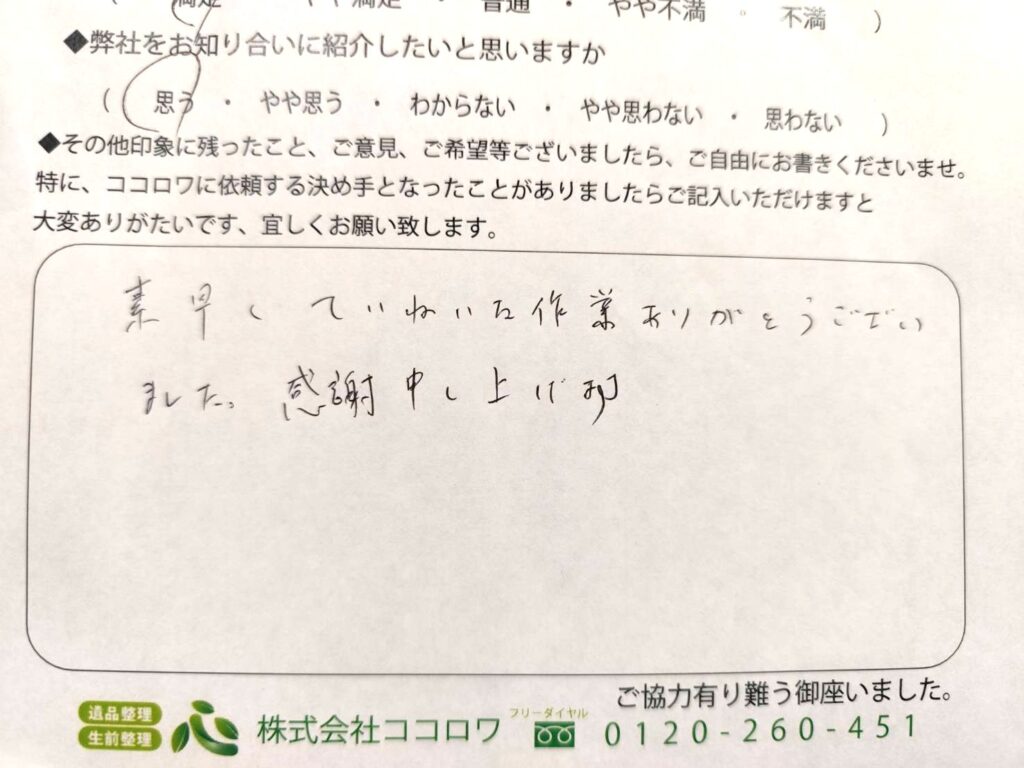 満足 ・ やや満足 ・ 普通 ・ やや不満 ・ 不満 )
◆弊社をお知り合いに紹介したいと思いますか
( 思う ・ やや思う ・ わからない ・ やや思わない ・ 思わない )
◆その他印象に残ったこと、ご意見、ご希望等ございましたら、ご自由にお書きくださいませ。
特に、ココロワに依頼する決め手となったことがありましたらご記入いただけますと
大変ありがたいです、宜しくお願い致します。
素早くていねいな作業ありがとうござい
ました。感謝申し上げます
ご協力有り難う御座いました。
遺品整理
生前整理
株式会社ココロワ
フリーダイヤル
0120-260-451